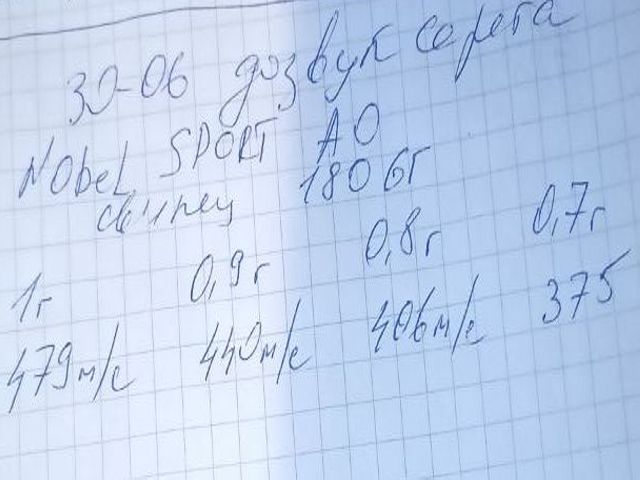 30-06 дозвук Серёга
Nobel SPORT A0
свинец 180 GГ
1г 0,9г 0,8г 0,7г
479м/с 440м/с 406м/с 375